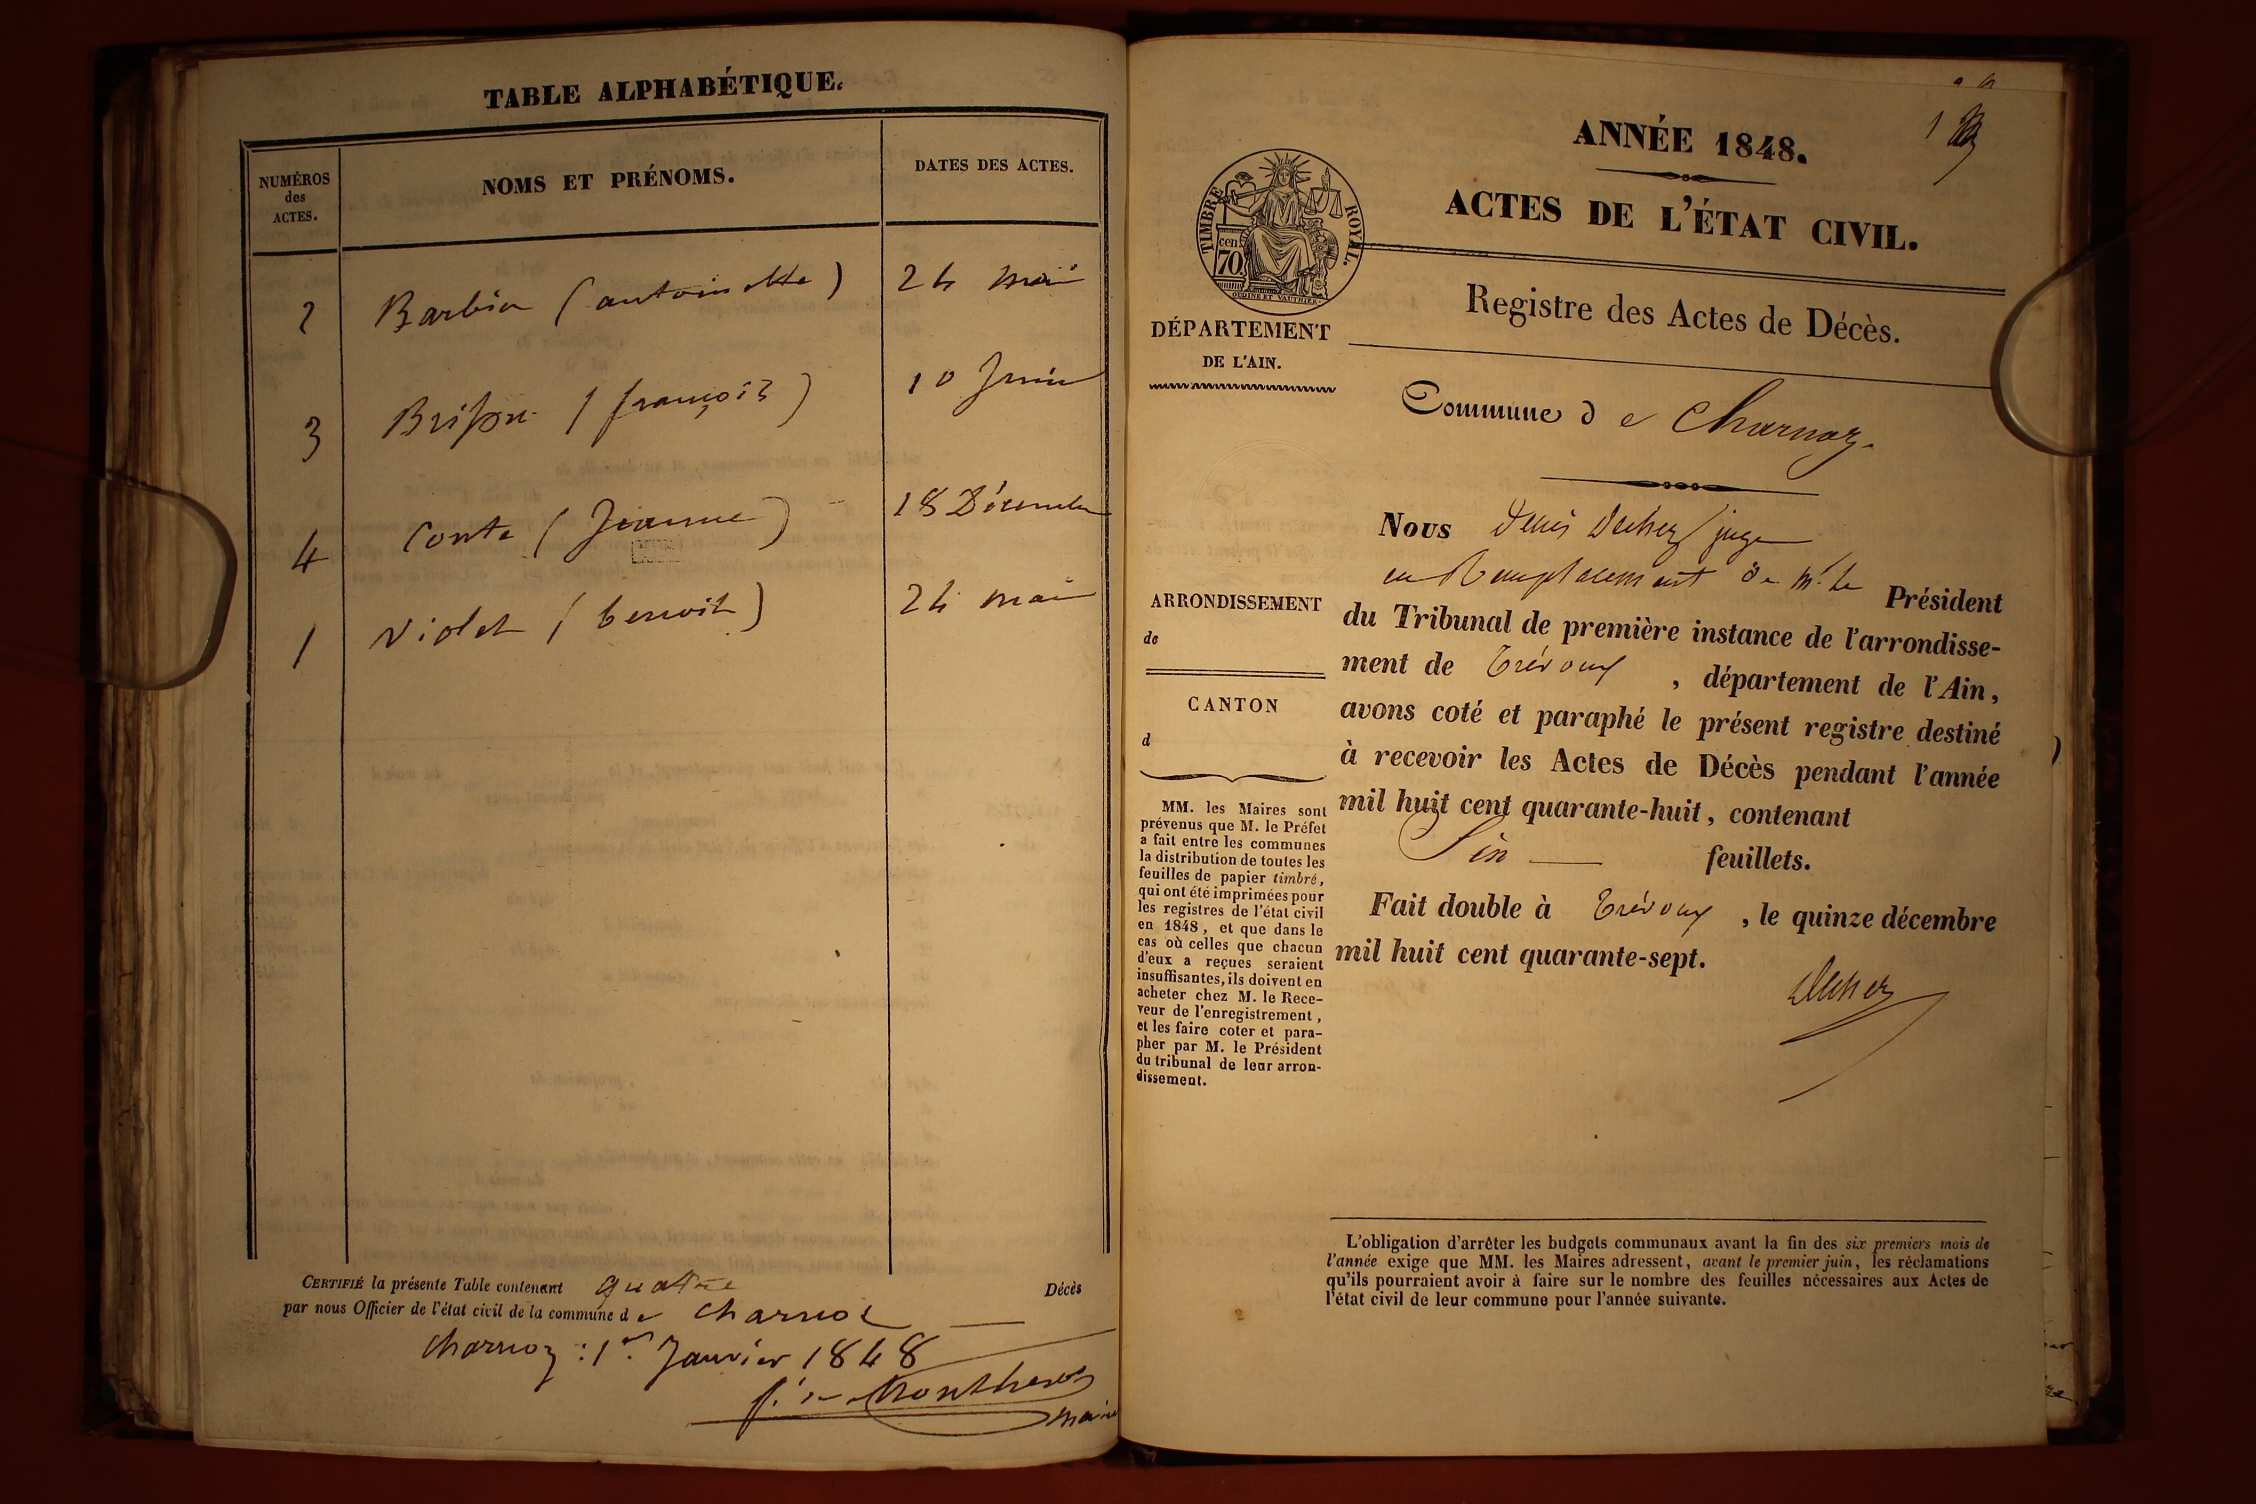 TABLE ALPHABÉTIQUE.
NUMÉROS
des
ACTES.
NOMS ET PRÉNOMS.
DATES DES ACTES.
2 Barbier (antoinette) 24 mai
3 (françois) 10 Juin
4 Conte (Jeanne) 18 Décembre
1 Violet (benoit) 24 mai
CERTIFIÉ la présente Table contenant quatre Décès
par nous Officier de l'état civil de la commune de charnoz
charnoz : 1er Janvier 1848
maire
1
ANNÉE 1848.
ACTES DE L'ÉTAT CIVIL.
TIMBRE ROYAL.
cen
70
OUDINE ET VAUTHIER.
Registre des Actes de Décès.
DÉPARTEMENT
DE L'AIN.
Commune de Charnoz.
Nous Denis juge
en Remplacement de Mr. le Président
du Tribunal de première instance de l'arrondisse-
ment de Trévoux, département de l'Ain,
avons coté et paraphé le présent registre destiné
à recevoir les Actes de Décès pendant l'année
mil huit cent quarante-huit, contenant
Six feuillets.
Fait double à Trévoux, le quinze décembre
mil huit cent quarante-sept.
ARRONDISSEMENT
de
CANTON
d
MM. les Maires sont
prévenus que M. le Préfet
a fait entre les communes
la distribution de toutes les
feuilles de papier timbré,
qui ont été imprimées pour
les registres de l'état civil
en 1848, et que dans le
cas où celles que chacun
d'eux a reçues seraient
insuffisantes, ils doivent en
acheter chez M. le Rece-
veur de l'enregistrement,
et les faire coter et para-
pher par M. le Président
du tribunal de leur arron-
dissement.
L'obligation d'arrêter les budgets communaux avant la fin des six premiers mois de
l'année exige que MM. les Maires adressent, avant le premier juin, les réclamations
qu'ils pourraient avoir à faire sur le nombre des feuilles nécessaires aux Actes de
l'état civil de leur commune pour l'année suivante.